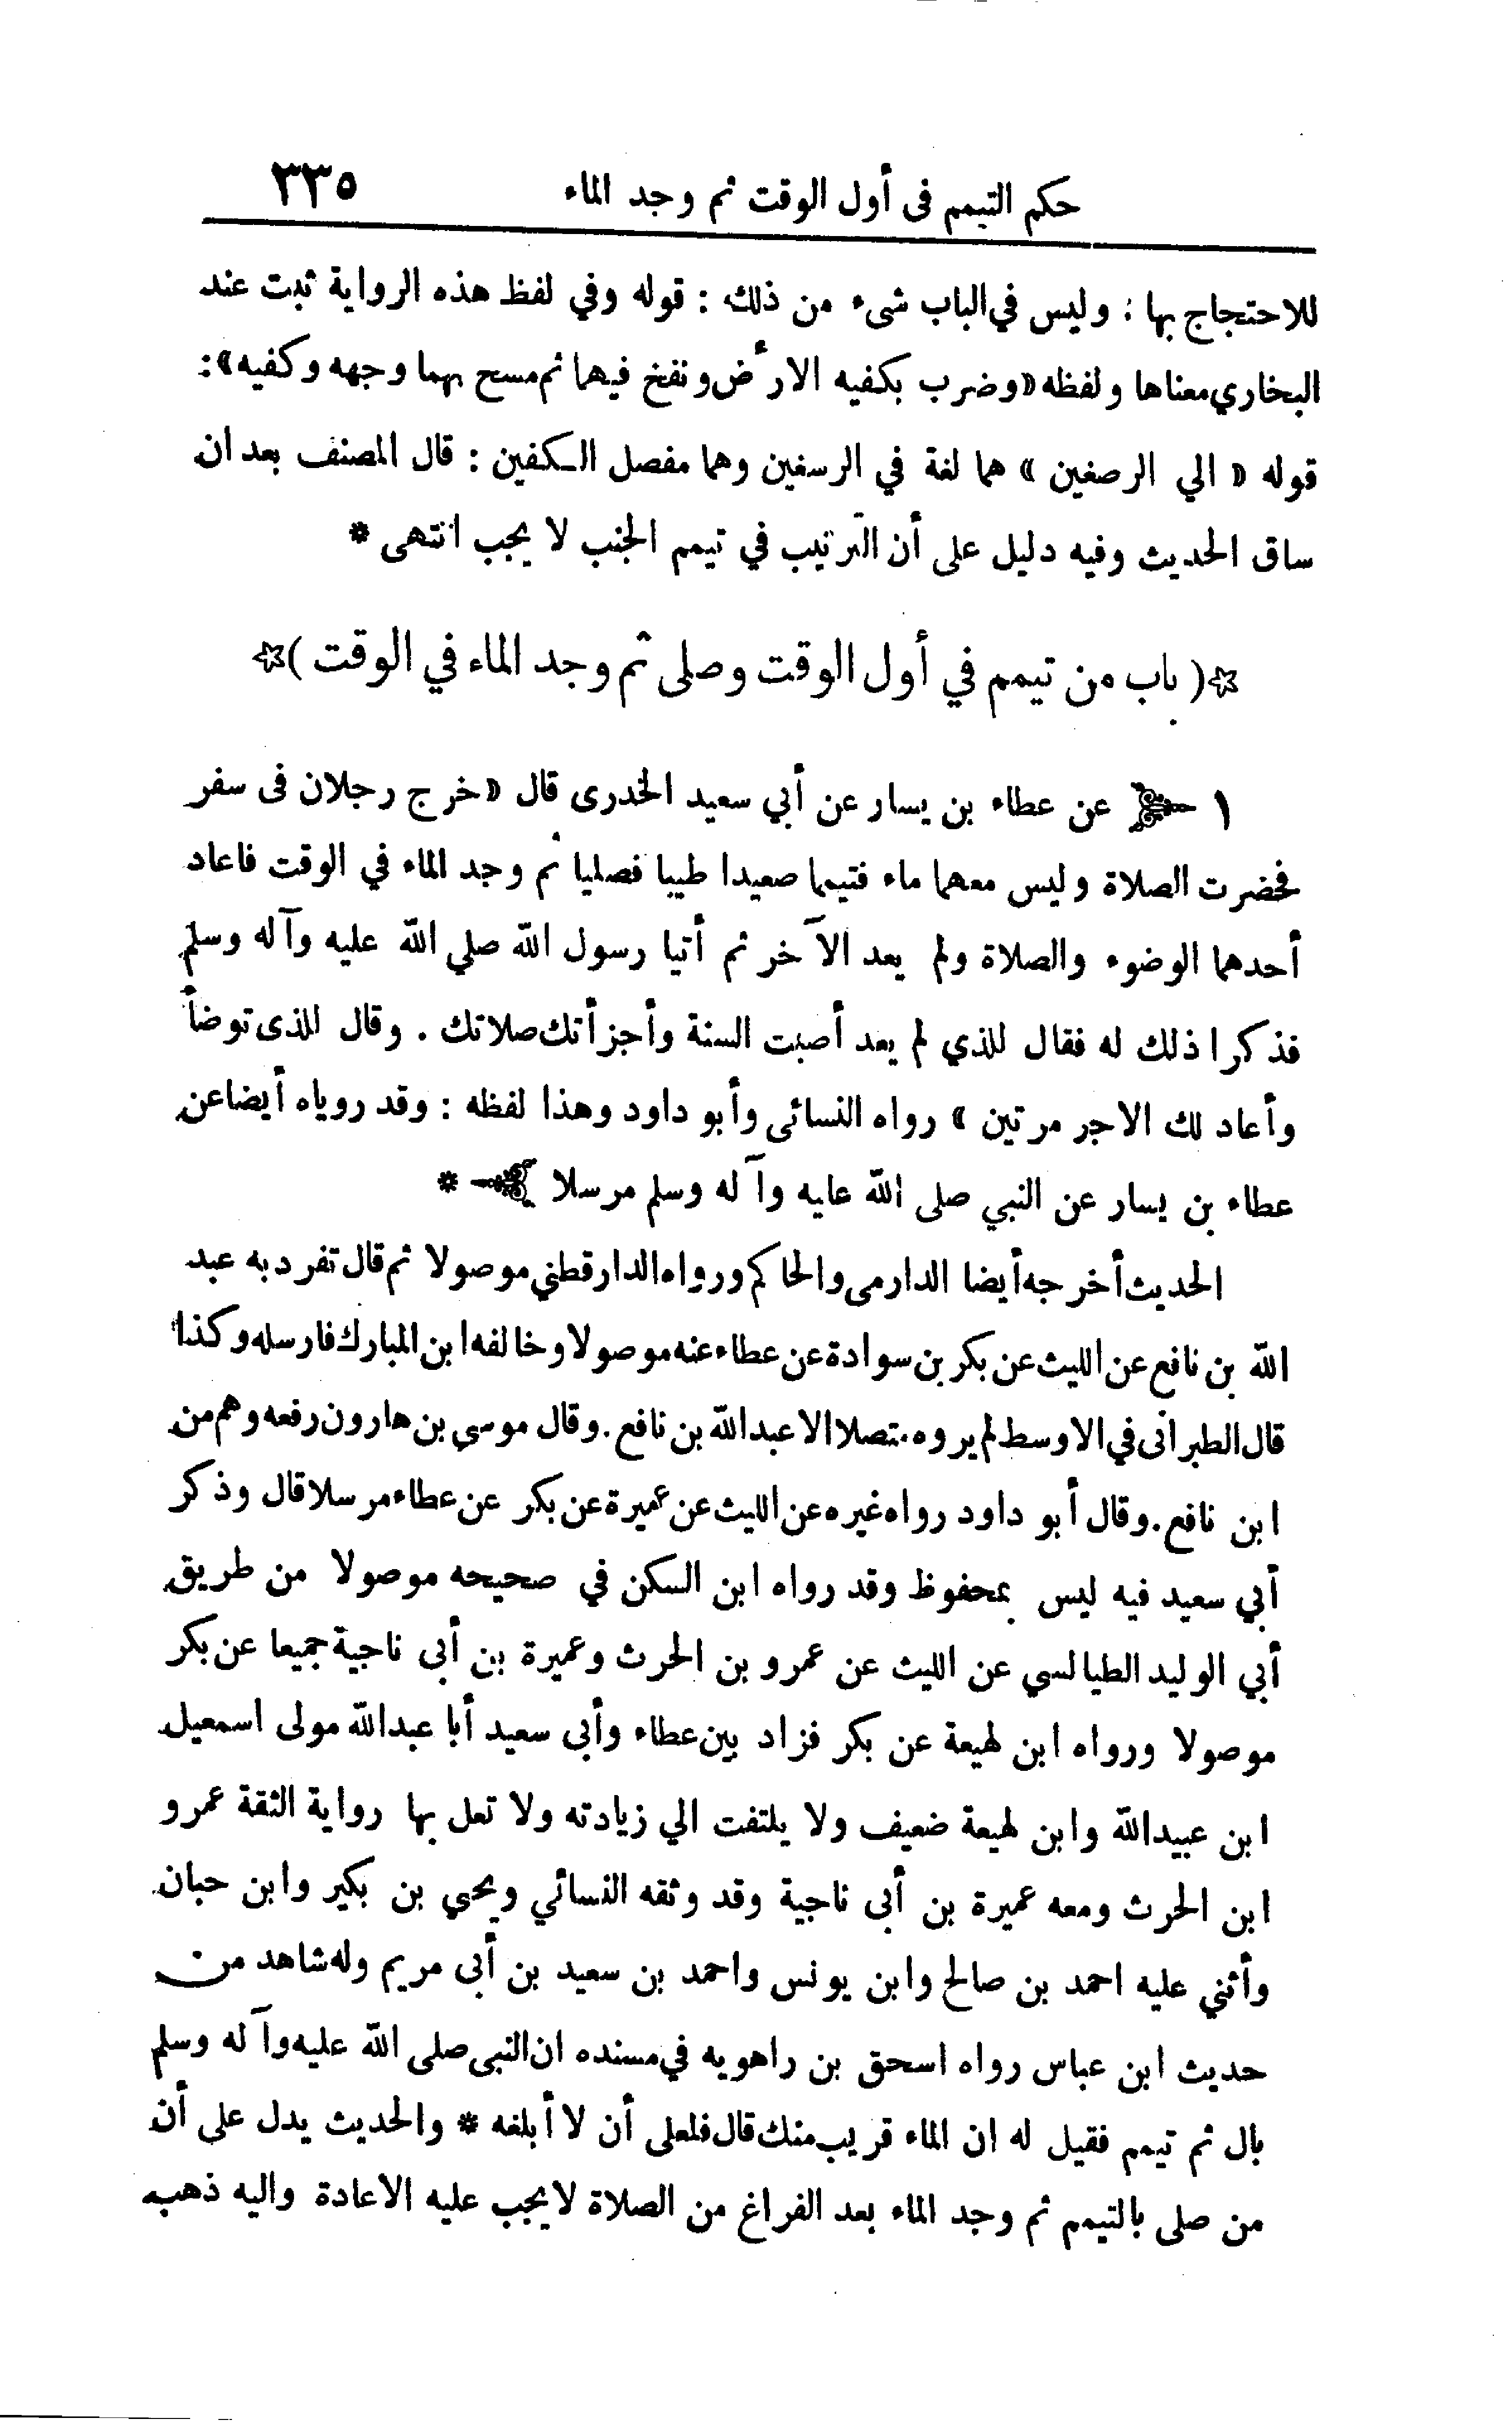 حكم التيمم فى أول الوقت ثم وجد الماء ٣٣٥
للاحتجاج بها : وليس في الباب شىء من ذلك : قوله وفي لفظ هذه الرواية ثبت عند
البخاري معناها ولفظه « وضرب بكفيه الارض ونفخ فيهما ثم مسح بهما وجهه وكفيه » :
قوله « الي الرصغين » هما لغة في الرسغين وهما مفصل الكفين : قال المصنف بعد ان
ساق الحديث وفيه دليل على أن الترتيب في تيمم الجنب لا يجب انتهى *
( باب من تيمم في أول الوقت وصلى ثم وجد الماء في الوقت )
١ عن عطاء بن يسار عن أبي سعيد الخدرى قال « خرج رجلان فى سفر
فحضرت الصلاة وليس معهما ماء فتيمما صعيدا طيبا فصليا ثم وجد الماء في الوقت فاعاد
أحدهما الوضوء والصلاة ولم يعد الآخر ثم أتيا رسول الله صلي الله عليه وآله وسلم
فذكرا ذلك له فقال للذي لم يعد أصبت السنة وأجزأتك صلاتك . وقال للذى توضأ
وأعاد لك الاجر مرتين » رواه النسائى وأبو داود وهذا لفظه : وقد روياه أيضا عن
عطاء بن يسار عن النبي صلى الله عليه وآله وسلم مرسلا *
الحديث أخرجه أيضا الدارمى والحاكم ورواه الدارقطني موصولا ثم قال تفرد به عبد
الله بن نافع عن الليث عن بكر بن سوادة عن عطاء عنه موصولا وخالفه ابن المبارك فارسله وكذا
قال الطبرانى في الاوسط لم يروه متصلا الا عبد الله بن نافع . وقال موسى بن هارون رفعه وهم من
ابن نافع . وقال أبو داود رواه غيره عن الليث عن عميرة عن بكر عن عطاء مرسلا قال وذكر
أبي سعيد فيه ليس بمحفوظ وقد رواه ابن السكن في صحيحه موصولا من طريق
أبي الوليد الطيالسي عن الليث عن عمرو بن الحرث وعميرة بن أبى ناجية جميعا عن بكر
موصولا ورواه ابن لهيعة عن بكر فزاد بين عطاء وأبى سعيد أبا عبد الله مولى اسمعيل
ابن عبيد الله وابن لهيعة ضعيف ولا يلتفت الي زيادته ولا تعل بها رواية الثقة عمرو
ابن الحرث ومعه عميرة بن أبى ناجية وقد وثقه النسائي ويحيي بن بكير وابن حبان
وأثني عليه احمد بن صالح وابن يونس واحمد بن سعيد بن أبى مريم وله شاهد من
حديث ابن عباس رواه اسحق بن راهويه في مسنده ان النبى صلى الله عليه وآله وسلم
بال ثم تيمم فقيل له ان الماء قريب منك قال فلعلى أن لا أبلغه * والحديث يدل على أن
من صلى بالتيمم ثم وجد الماء بعد الفراغ من الصلاة لا يجب عليه الاعادة واليه ذهب